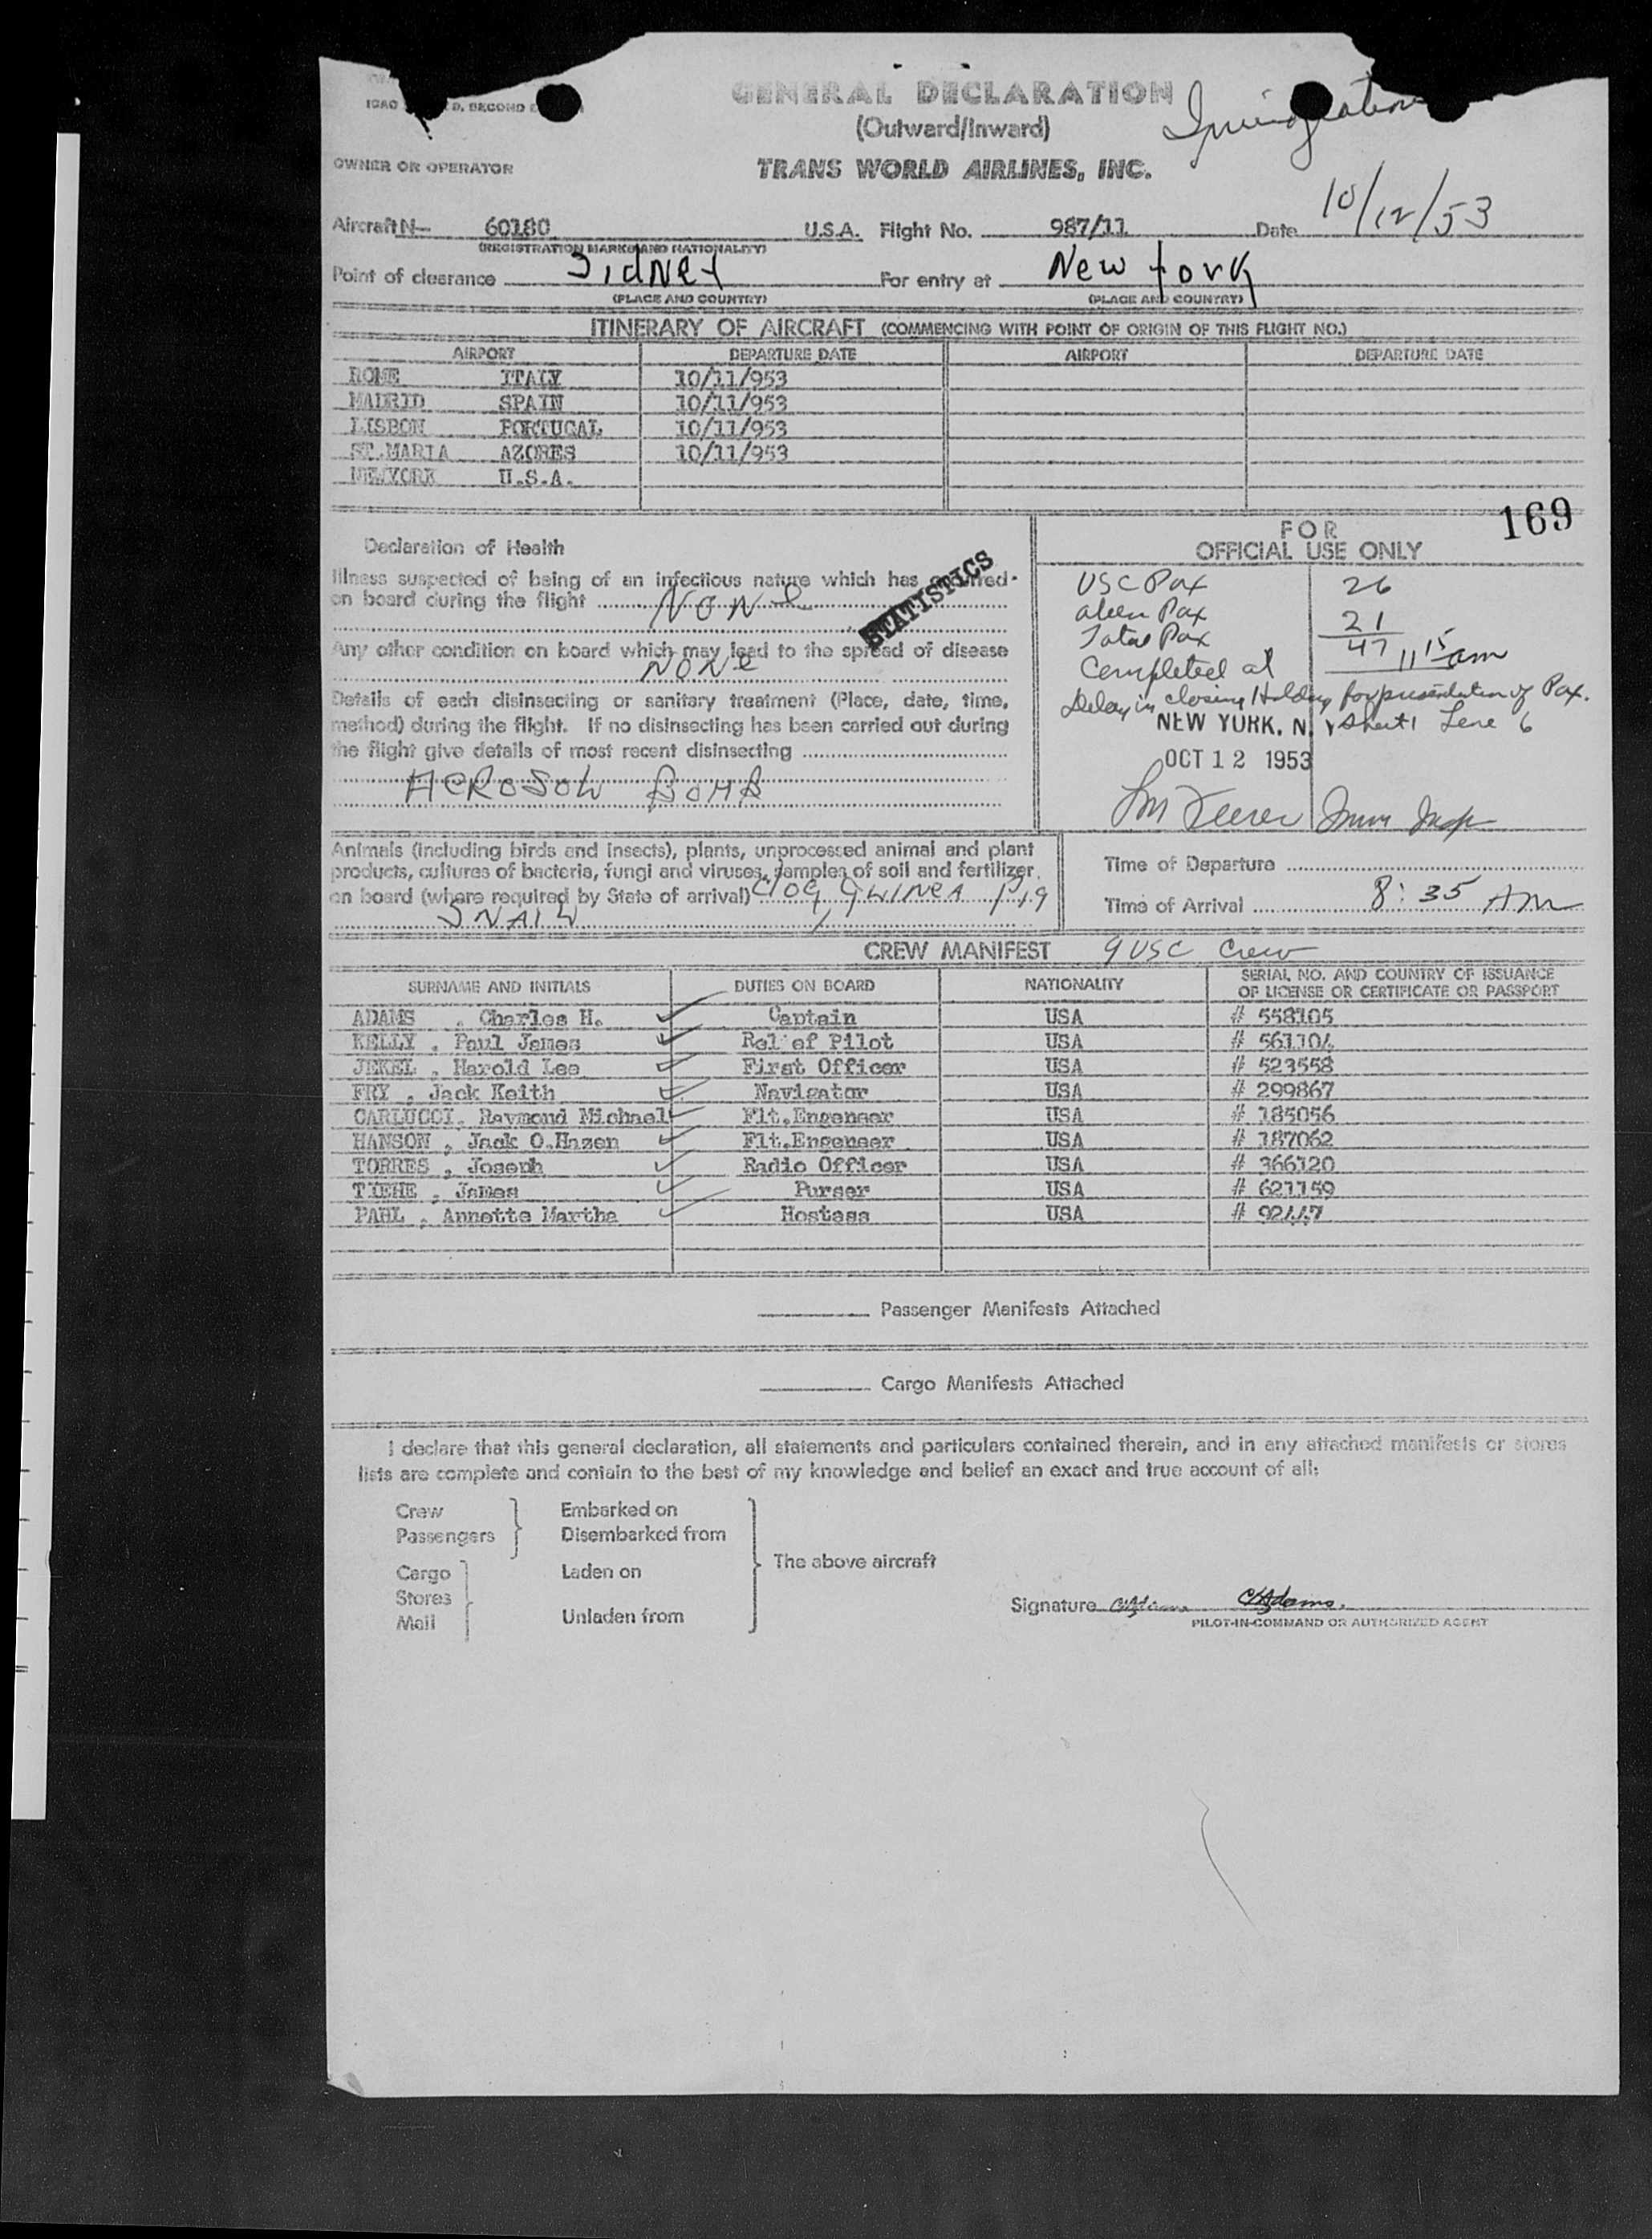 ICAO D, SECOND
GENERAL DECLARATION
(Outward/Inward)
Immigration
OWNER OR OPERATOR
TRANS WORLD AIRLINES, INC.
Aircraft N— 60180 U.S.A. Flight No. 987/11 Date 10/12/53
(REGISTRATION MARKS AND NATIONALITY)
Point of clearance Sidney For entry at New York
(PLACE AND COUNTRY) (PLACE AND COUNTRY)
ITINERARY OF AIRCRAFT (COMMENCING WITH POINT OF ORIGIN OF THIS FLIGHT NO.)
AIRPORT DEPARTURE DATE AIRPORT DEPARTURE DATE
ROME ITALY 10/11/953
MADRID SPAIN 10/11/953
LISBON PORTUGAL 10/11/953
ST.MARIA AZORES 10/11/953
NEWYORK U.S.A.
169
Declaration of Health
Illness suspected of being of an infectious nature which has occurred
on board during the flight None
STATISTICS
Any other condition on board which may lead to the spread of disease
None
Details of each disinsecting or sanitary treatment (Place, date, time,
method) during the flight. If no disinsecting has been carried out during
the flight give details of most recent disinsecting
AEROSOL BOMB
FOR
OFFICIAL USE ONLY
USC Pax 26
alien Pax 21
Total Pax 47
Completed at 11 15 am
Delay in closing Holding for presentation of Pax.
NEW YORK, N. Y Sheet 1 Line 6
OCT 12 1953
Imm Insp
Animals (including birds and insects), plants, unprocessed animal and plant
products, cultures of bacteria, fungi and viruses, samples of soil and fertilizer
on board (where required by State of arrival) guinea pig
SNAIL
Time of Departure
Time of Arrival 8:35 AM
CREW MANIFEST 9 USC Crew
SURNAME AND INITIALS DUTIES ON BOARD NATIONALITY SERIAL NO. AND COUNTRY OF ISSUANCE
OF LICENSE OR CERTIFICATE OR PASSPORT
ADAMS , Charles H. Captain USA # 558105
KELLY , Paul James Relief Pilot USA # 561104
JEKEL , Harold Lee First Officer USA # 523558
FRY , Jack Keith Navigator USA # 299867
CARLUCCI, Raymond Michael Flt.Engeneer USA # 185056
HANSON , Jack O.Hazen Flt.Engeneer USA # 187062
TORRES , Joseph Radio Officer USA # 366120
TIEHE , James Purser USA # 621159
PAHL , Annette Martha Hostess USA # 92447
Passenger Manifests Attached
Cargo Manifests Attached
I declare that this general declaration, all statements and particulars contained therein, and in any attached manifests or stores
lists are complete and contain to the best of my knowledge and belief an exact and true account of all:
Crew Embarked on
Passengers Disembarked from
The above aircraft
Cargo Laden on
Stores
Mail Unladen from
Signature CHAdams CHAdams.
PILOT-IN-COMMAND OR AUTHORIZED AGENT